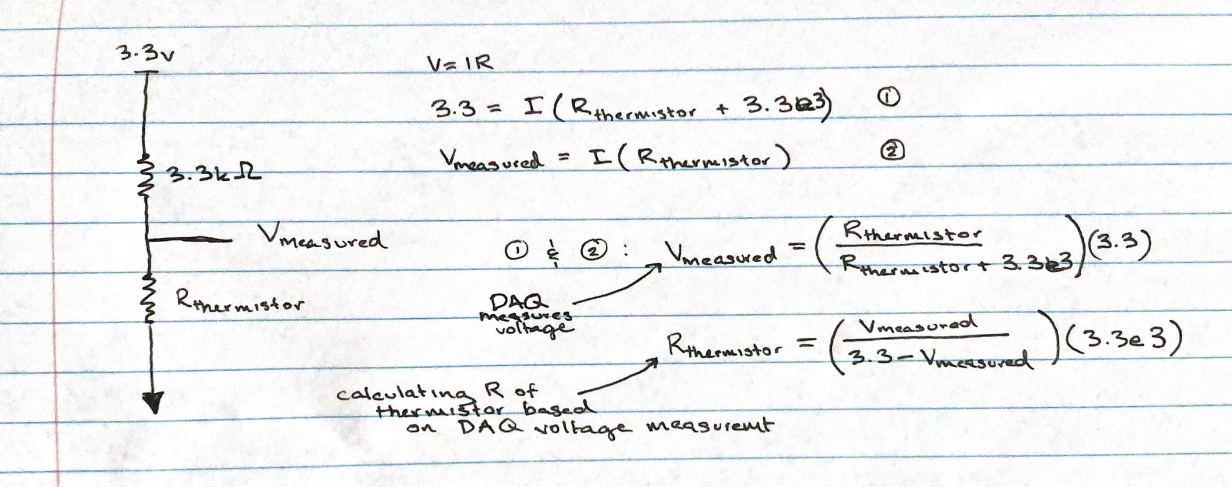 3.3v
3.3kΩ
Vmeasured
Rthermistor
V=IR
3.3 = I (Rthermistor + 3.3e3) ①
Vmeasured = I (Rthermistor) ②
① & ② : Vmeasured = (Rthermistor / Rthermistor + 3.3e3)(3.3)
DAQ
measures
voltage
Rthermistor = (Vmeasured / 3.3 - Vmeasured)(3.3e3)
calculating R of
thermistor based
on DAQ voltage measuremt